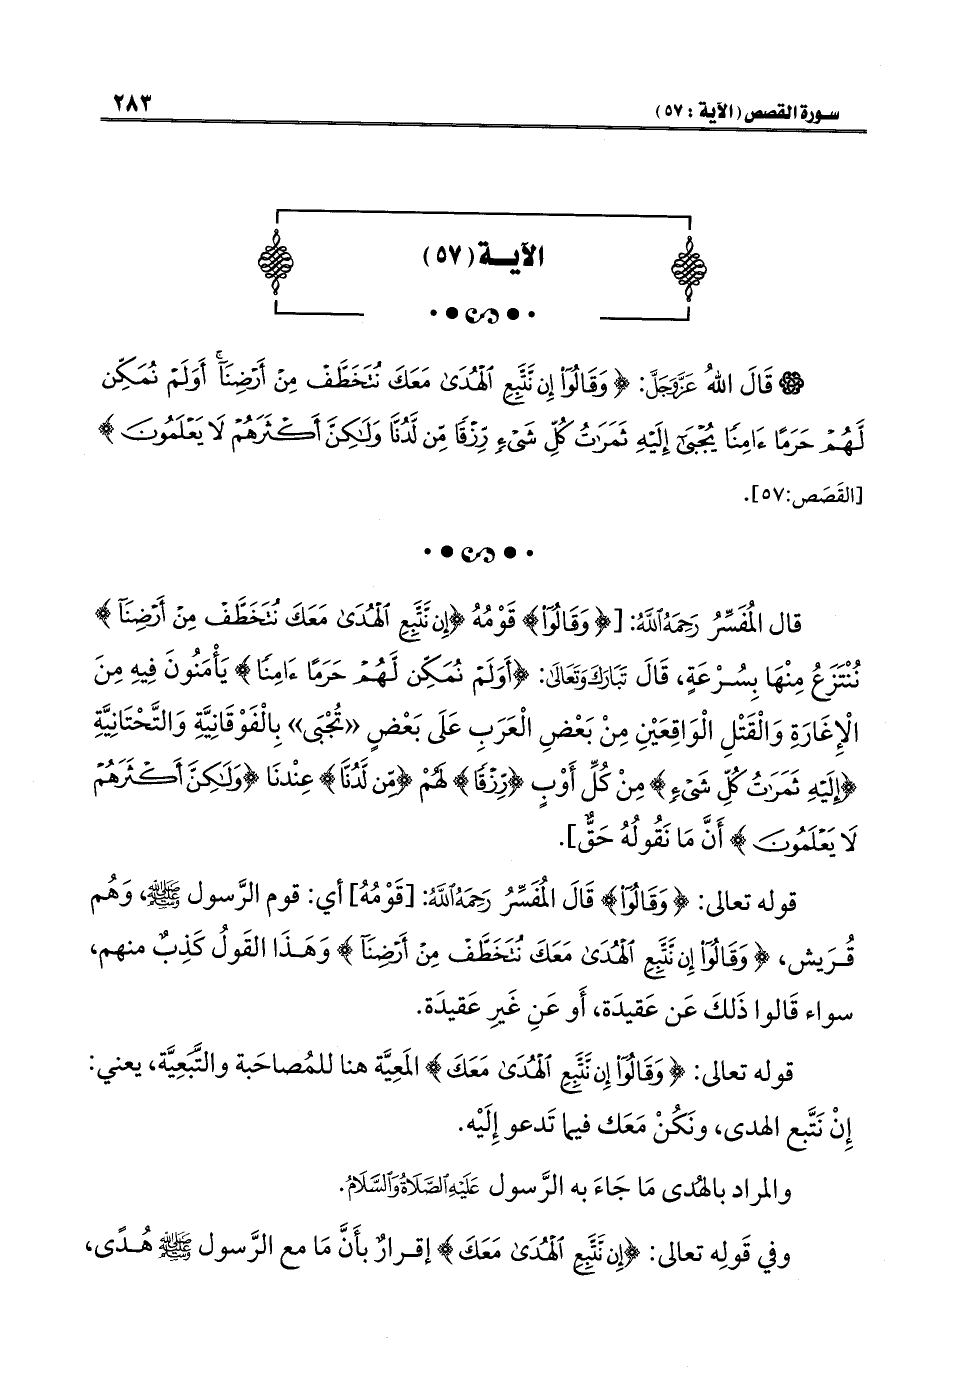 سورة القصص (الآية : ٥٧)
٢٨٣
الآيـــة (٥٧)
قَالَ اللهُ عَزَّوَجَلَّ: ﴿ وَقَالُوٓا۟ إِن نَّتَّبِعِ ٱلْهُدَىٰ مَعَكَ نُتَخَطَّفْ مِنْ أَرْضِنَآ ۚ أَوَلَمْ نُمَكِّن
لَّهُمْ حَرَمًا ءَامِنًا يُجْبَىٰٓ إِلَيْهِ ثَمَرَٰتُ كُلِّ شَىْءٍ رِّزْقًا مِّن لَّدُنَّا وَلَـٰكِنَّ أَكْثَرَهُمْ لَا يَعْلَمُونَ ﴾
[القَصَص:٥٧].
قال المُفَسِّرُ رَحِمَهُ اللَّهُ: [﴿ وَقَالُوٓا۟﴾ قَوْمُهُ ﴿إِن نَّتَّبِعِ ٱلْهُدَىٰ مَعَكَ نُتَخَطَّفْ مِنْ أَرْضِنَآ ﴾
نُنْتَزَعُ مِنْهَا بِسُرْعَةٍ، قَالَ تَبَارَكَ وَتَعَالَى: ﴿أَوَلَمْ نُمَكِّن لَّهُمْ حَرَمًا ءَامِنًا ﴾ يَأْمَنُونَ فِيهِ مِنَ
الْإِغَارَةِ وَالْقَتْلِ الْوَاقِعَيْنِ مِنْ بَعْضِ الْعَرَبِ عَلَى بَعْضٍ «تُجْبَى» بِالْفَوْقَانِيَّةِ وَالتَّحْتَانِيَّةِ
﴿إِلَيْهِ ثَمَرَٰتُ كُلِّ شَىْءٍ﴾ مِنْ كُلِّ أَوْبٍ ﴿رِّزْقًا﴾ لَهُمْ ﴿مِّن لَّدُنَّا﴾ عِنْدنَا ﴿وَلَـٰكِنَّ أَكْثَرَهُمْ
لَا يَعْلَمُونَ ﴾ أَنَّ مَا نَقُولُهُ حَقٌّ].
قوله تعالى: ﴿ وَقَالُوٓا۟﴾ قَالَ المُفَسِّرُ رَحِمَهُ اللَّهُ: [قَوْمُهُ] أي: قوم الرَّسول ﷺ، وَهُم
قُـرَيش، ﴿ وَقَالُوٓا۟ إِن نَّتَّبِعِ ٱلْهُدَىٰ مَعَكَ نُتَخَطَّفْ مِنْ أَرْضِنَآ ﴾ وَهَـذَا القَولُ كَذِبٌ منهم،
سواء قَالوا ذَلكَ عَن عَقيدَة، أَو عَنِ غَيرِ عَقيدَة.
قوله تعالى: ﴿ وَقَالُوٓا۟ إِن نَّتَّبِعِ ٱلْهُدَىٰ مَعَكَ ﴾ المَعِيَّة هنا للمُصاحَبة والتَّبَعِيَّة، يعني:
إِنْ نَتَّبع الهدى، ونَكُنْ مَعَك فيما تَدعو إِلَيْه.
والمراد بالهُدى مَا جَاءَ به الرَّسول عَلَيْهِ الصَّلَاةُ وَالسَّلَامُ.
وفي قَولِه تعالى: ﴿إِن نَّتَّبِعِ ٱلْهُدَىٰ مَعَكَ ﴾ إقرارٌ بأَنَّ مَا مع الرَّسول ﷺ هُـدًى،